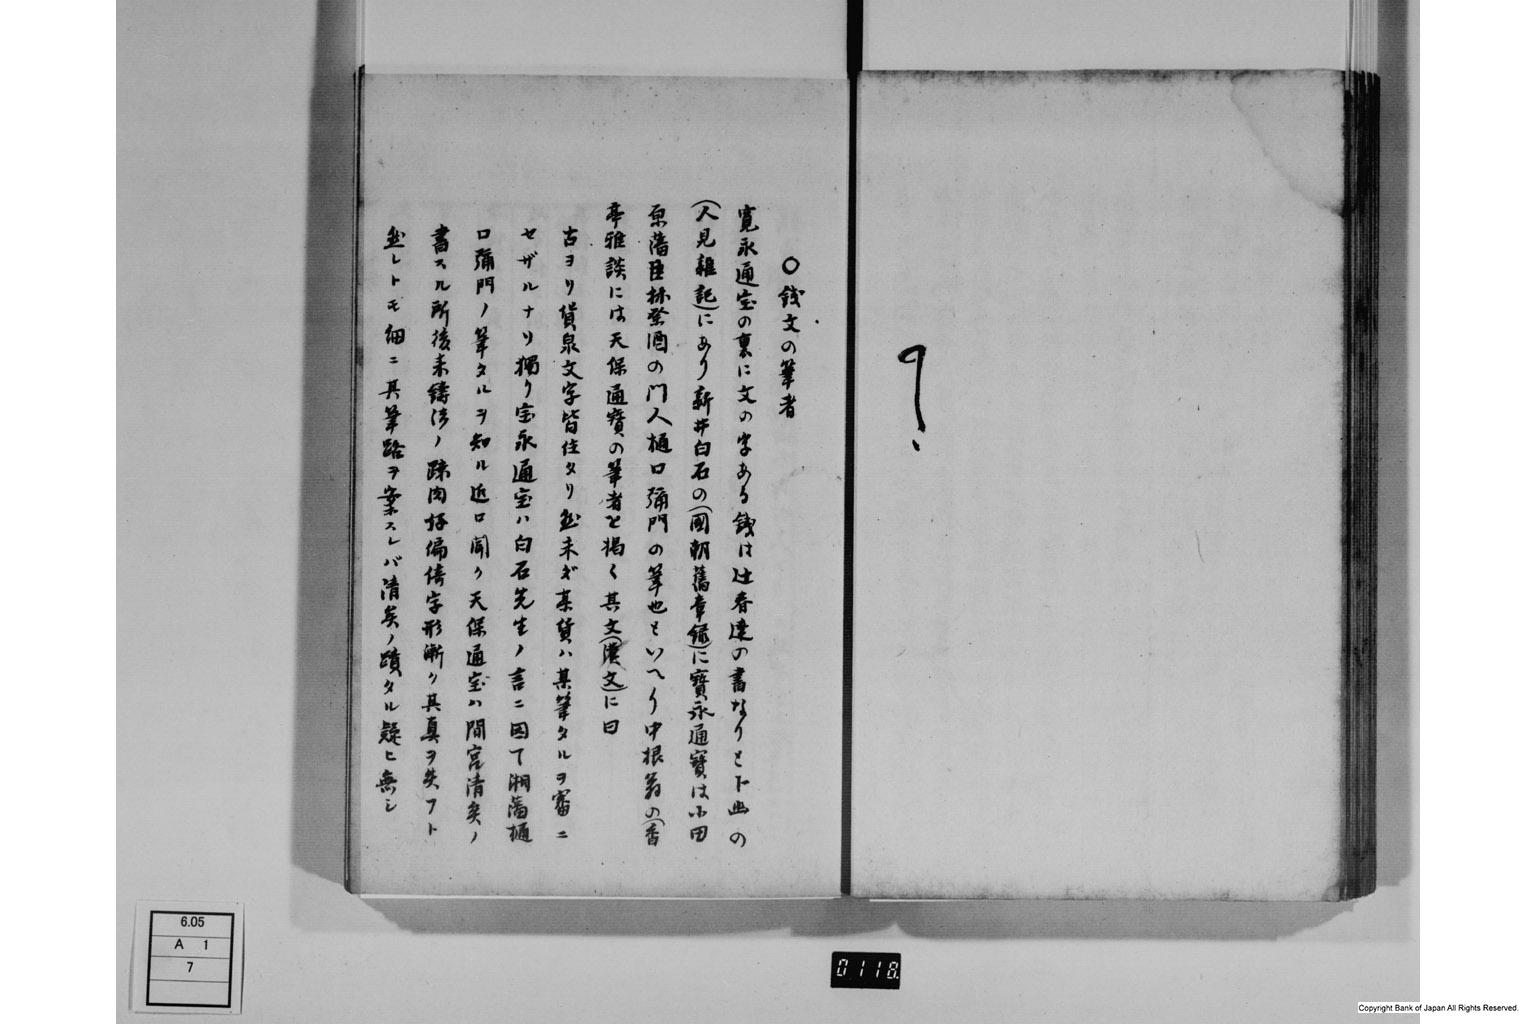 ?
〇銭文の筆者
寛永通宝の裏に文の字ある銭は辻春達の書なりとト幽の
(人見雑記)にあり新井白石の(國朝舊章録)に寶永通寶は小田
原藩臣林祭酒の門人樋口彌門の筆也といへり中根翁の(香
亭雅談には天保通寶の筆者と掲く其文(漢文)に曰
古ヨリ貨泉文字皆佳タリ然未ダ某貨ハ某筆タルヲ審ニ
セザルナリ獨り宝永通宝ハ白石先生ノ言ニ因て湘藩樋
口彌門ノ筆タルヲ知ル近口聞ク天保通宝ハ間宮清矣ノ
書スル所後来鋳法ノ疎肉好偏倚字形漸ク其真ヲ失フト
然レトモ細ニ其筆路ヲ案スレバ清矣ノ蹟タル疑ヒ無シ
6.05
A 1
7
0118
Copyright Bank of Japan All Rights Reserved.